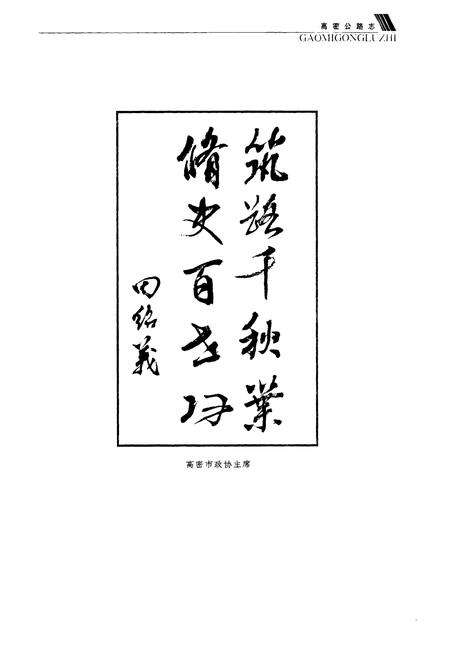 高密公路志
GAOMIGONGLUZHI
筑路千秋業
脩史百世功
田紹義
高密市政协主席